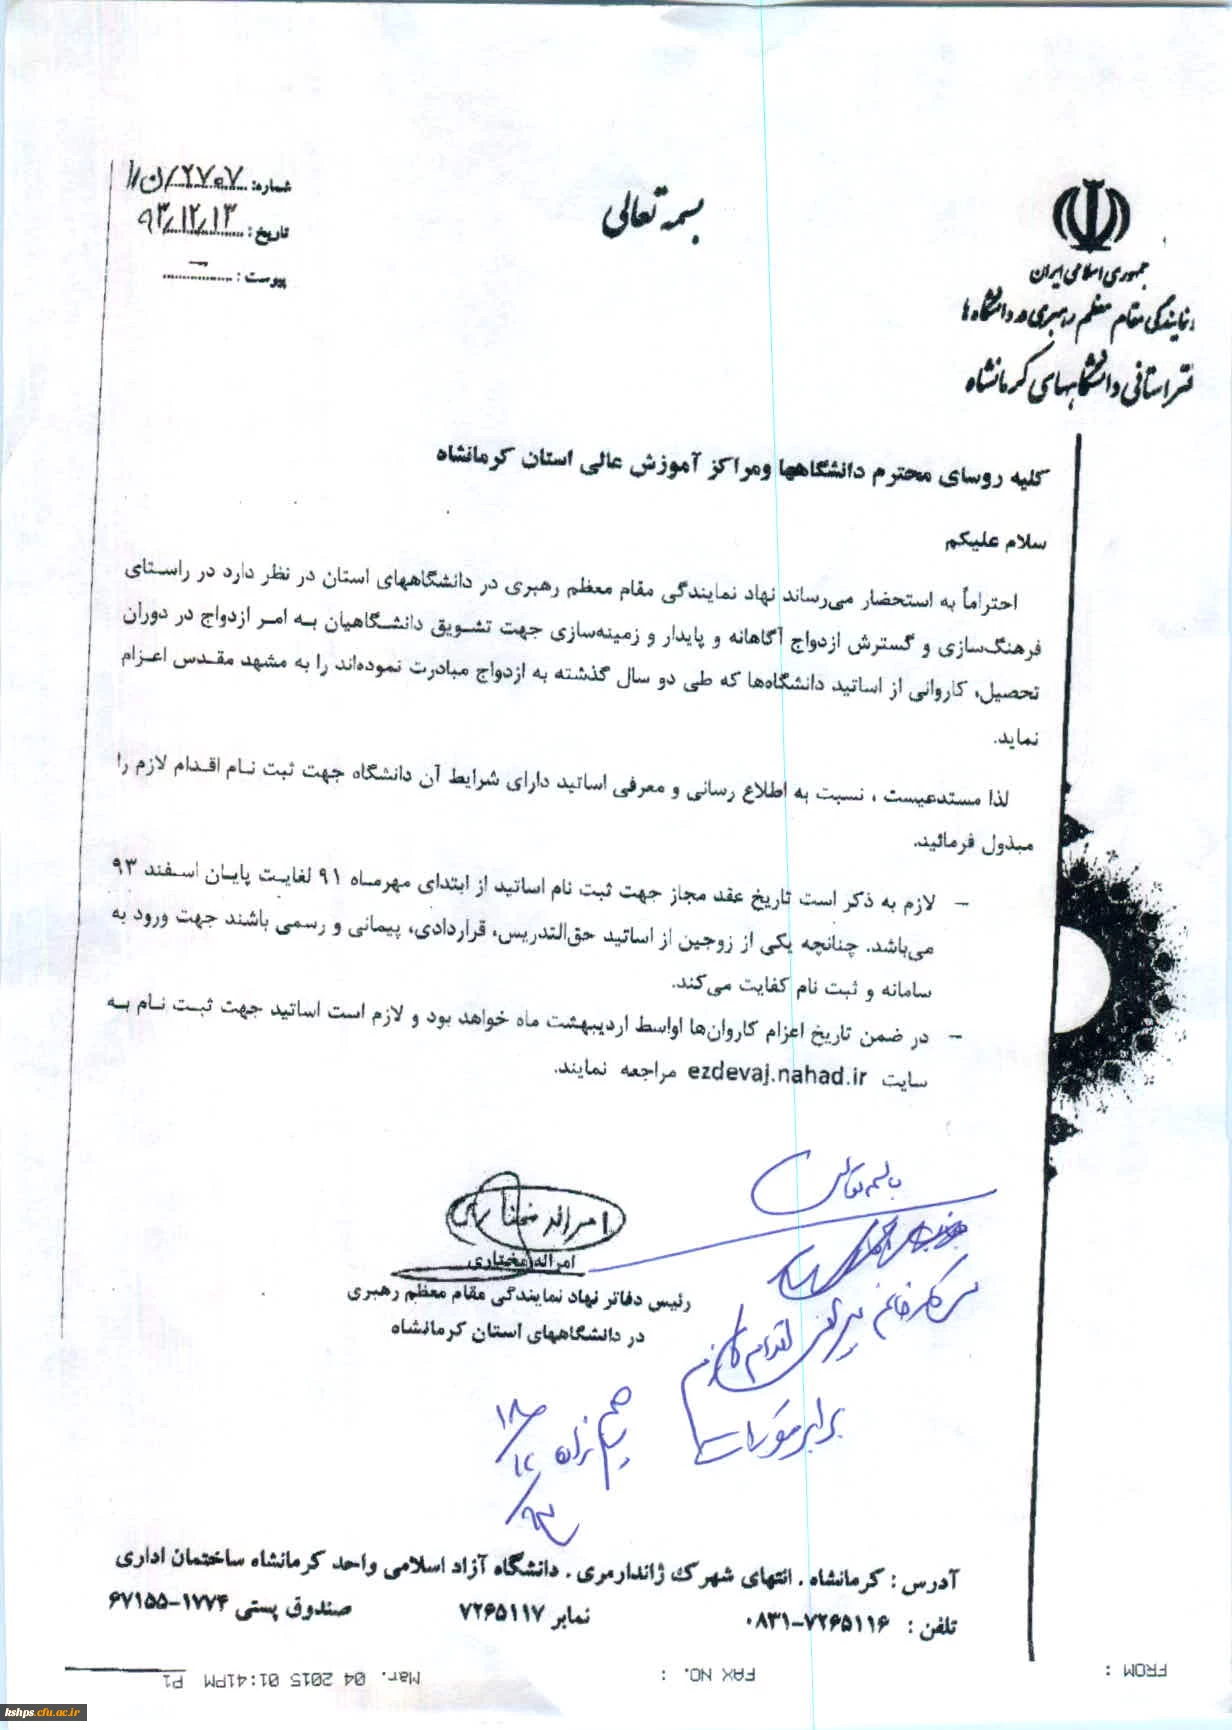 بسمه تعالی
جمهوری اسلامی ایران
نمایندگی مقام معظم رهبری در دانشگاه ها
دفتر استانی دانشگاههای کرمانشاه
شماره: ۲۷۰۷/ن/۱۱
تاریخ: ۹۳/۱۲/۱۳
پیوست:
کلیه روسای محترم دانشگاهها ومراکز آموزش عالی استان کرمانشاه
سلام علیکم
احتراماً به استحضار می‌رساند نهاد نمایندگی مقام معظم رهبری در دانشگاههای استان در نظر دارد در راستای
فرهنگ‌سازی و گسترش ازدواج آگاهانه و پایدار و زمینه‌سازی جهت تشویق دانشگاهیان به امر ازدواج در دوران
تحصیل، کاروانی از اساتید دانشگاه‌ها که طی دو سال گذشته به ازدواج مبادرت نموده‌اند را به مشهد مقدس اعزام
نماید.
لذا مستدعیست ، نسبت به اطلاع رسانی و معرفی اساتید دارای شرایط آن دانشگاه جهت ثبت نام اقدام لازم را
مبذول فرمائید.
– لازم به ذکر است تاریخ عقد مجاز جهت ثبت نام اساتید از ابتدای مهرماه ۹۱ لغایت پایان اسفند ۹۳
می‌باشد. چنانچه یکی از زوجین از اساتید حق‌التدریس، قراردادی، پیمانی و رسمی باشند جهت ورود به
سامانه و ثبت نام کفایت می‌کند.
– در ضمن تاریخ اعزام کاروان‌ها اواسط اردیبهشت ماه خواهد بود و لازم است اساتید جهت ثبت نام به
سایت ezdevaj.nahad.ir مراجعه نمایند.
امراله مختاری
امراله مختاری
رئیس دفاتر نهاد نمایندگی مقام معظم رهبری
در دانشگاههای استان کرمانشاه
باسمه تعالی
سرکار خانم اقدام لازم
برابر مقررات
۱۸
۱۲
۹۳
آدرس : کرمانشاه . انتهای شهرک ژاندارمری . دانشگاه آزاد اسلامی واحد کرمانشاه ساختمان اداری
تلفن : ۰۸۳۱-۷۲۶۵۱۱۶ نمابر ۷۲۶۵۱۱۷ صندوق پستی ۱۷۷۴-۶۷۱۵۵
FROM : FAX NO. : Mar. 04 2015 01:41PM P1
kshps.cfu.ac.ir